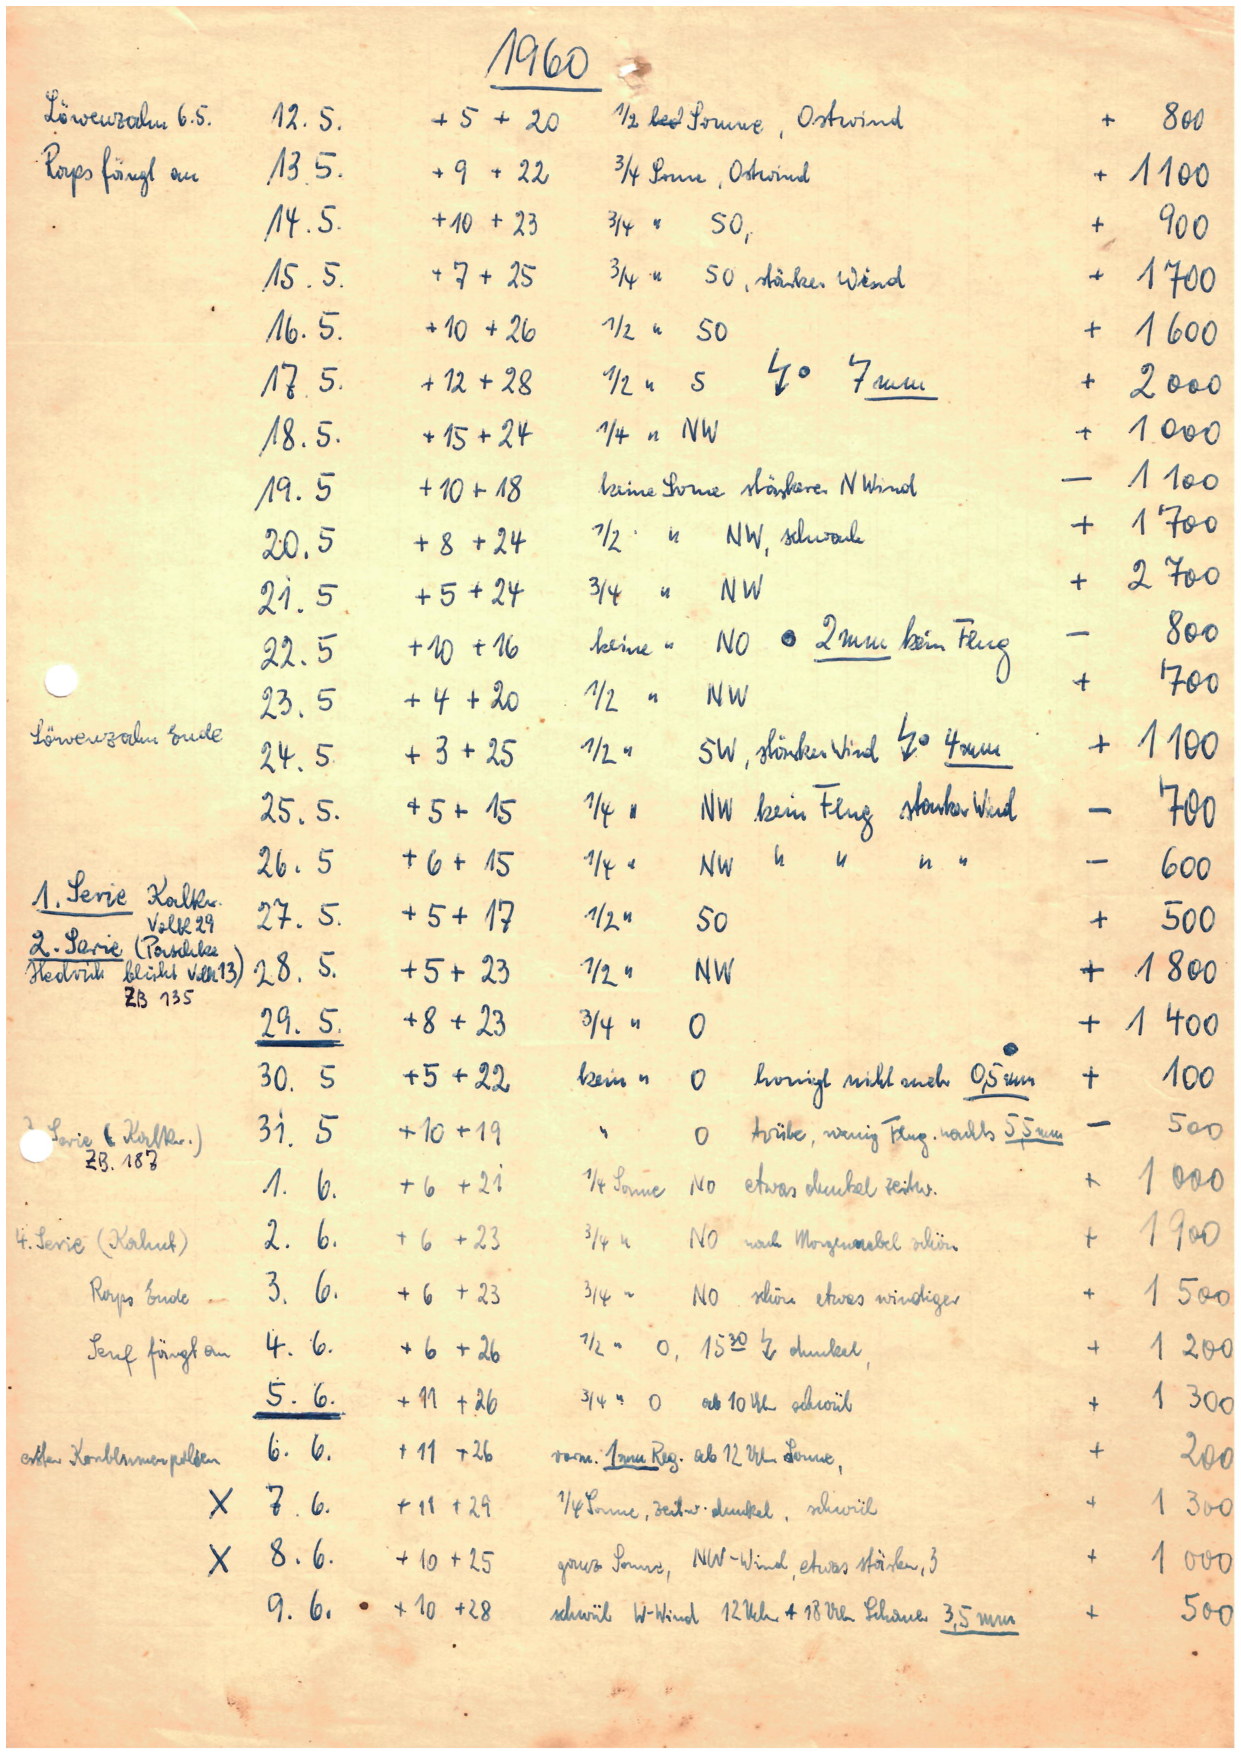 1960
Löwenzahn 6.5. 12. 5. + 5 + 20 1/2 Sonne, Ostwind + 800
Raps fängt an 13. 5. + 9 + 22 3/4 Sonne, Ostwind + 1100
14. 5. +10 + 23 3/4 " SO, + 900
15. 5. + 7 + 25 3/4 " SO, starker Wind + 1700
16. 5. +10 + 26 1/2 " SO + 1600
17. 5. + 12 + 28 1/2 " S 7 mm + 2000
18. 5. + 15 + 24 1/4 " NW + 1000
19. 5 +10 + 18 keine Sonne stärkerer N Wind — 1100
20. 5 + 8 + 24 1/2 " NW, schwach + 1700
21. 5 + 5 + 24 3/4 " NW + 2700
22. 5 +10 + 16 keine " NO 2 mm kein Flug — 800
23. 5 + 4 + 20 1/2 " NW + 700
Löwenzahn Ende 24. 5. + 3 + 25 1/2 " SW, starker Wind 4 mm + 1100
25. 5. + 5 + 15 1/4 " NW kein Flug starker Wind — 700
26. 5 + 6 + 15 1/4 " NW " " " " — 600
1. Serie Kalkr.
Volk 29 27. 5. + 5 + 17 1/2 " SO + 500
2. Serie (Paschke
Volk 13) 28. 5. + 5 + 23 1/2 " NW + 1800
ZB 135
29. 5. +8 + 23 3/4 " O + 1400
30. 5 +5 + 22 kein " O honigt nicht mehr 0,5 mm + 100
Serie (Kalkr.) 31. 5 +10 +19 " O trübe, wenig Flug. nachts 5,5 mm — 500
ZB. 187
1. 6. + 6 + 21 1/4 Sonne NO etwas dunkel zeitw. + 1000
4. Serie (Kahnt) 2. 6. + 6 + 23 3/4 " NO nach Morgennebel schön + 1900
Raps Ende 3. 6. + 6 + 23 3/4 " NO schön etwas windiger + 1500
Senf fängt an 4. 6. + 6 + 26 1/2 " O, 15 30 dunkel, + 1200
5. 6. + 11 + 26 3/4 " O ab 10 Uhr schwül + 1300
6. 6. + 11 + 26 vorm. 1 mm Reg. ab 12 Uhr Sonne, + 200
X 7. 6. + 11 + 29 1/4 Sonne, zeitw. dunkel, schwül + 1300
X 8. 6. + 10 + 25 ganz Sonne, NW-Wind, etwas stärker, 3 + 1000
9. 6. + 10 +28 schwül W-Wind 12 Uhr + 18 Uhr Schauer 3,5 mm + 500